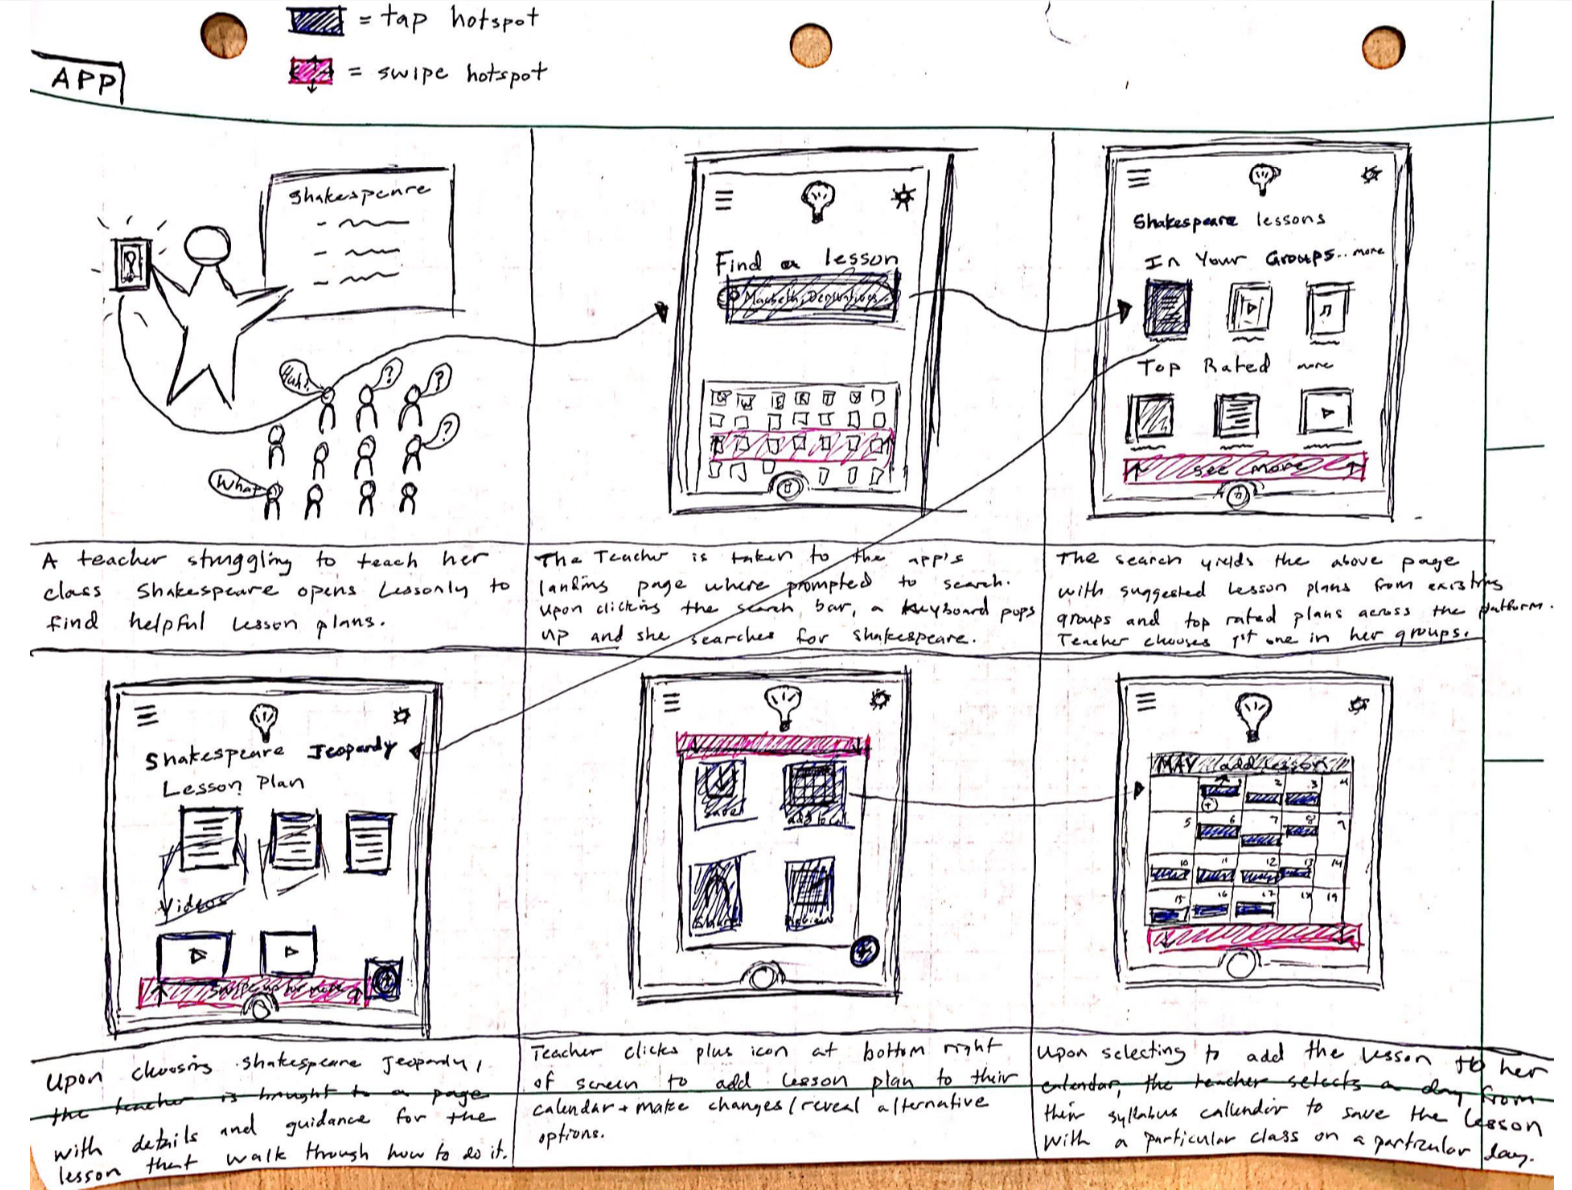 = tap hotspot
= swipe hotspot
APP
Shakespeare
Huh?
?
?
?
What
Find a lesson
Macbeth, Derivatives...
Shakespeare lessons
In Your Groups... more
Top Rated more
see more
A teacher struggling to teach her
class Shakespeare opens Lessonly to
find helpful lesson plans.
The Teacher is taken to the app's
landing page where prompted to search.
Upon clicking the search bar, a keyboard pops
up and she searches for Shakespeare.
The search yields the above page
with suggested lesson plans from existing
groups and top rated plans across the platform.
Teacher chooses 1st one in her groups.
Shakespeare Jeopardy
Lesson Plan
Videos
swipe up for more
save
add to cal
share
MAY add lesson
2 3 4
5 6 7 8 9
10 11 12 13 14
15 16 17 18 19
Upon choosing Shakespeare Jeopardy,
the teacher is brought to a page
with details and guidance for the
lesson that walk through how to do it.
Teacher clicks plus icon at bottom right
of screen to add lesson plan to their
calendar + make changes/reveal alternative
options.
Upon selecting to add the lesson to her
calendar, the teacher selects a day from
their syllabus callendir to save the lesson
with a particular class on a particular day.